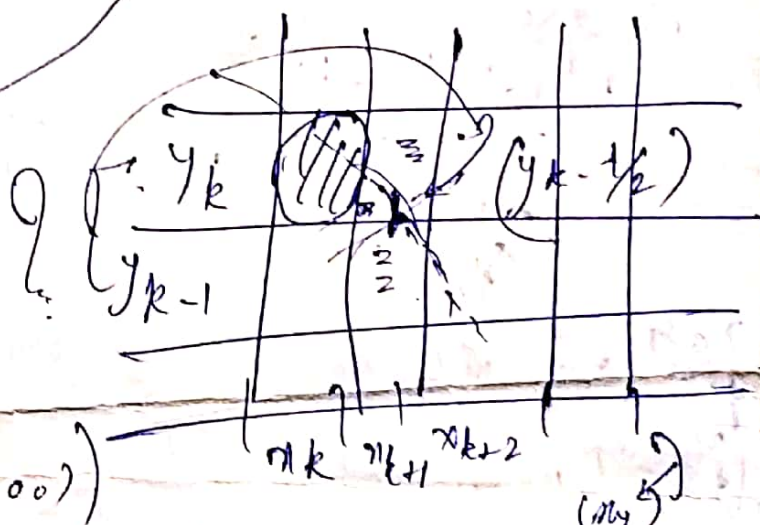 y_k
(y_{k-1/2})
y_{k-1}
x_k x_{k+1} x_{k+2}
00))